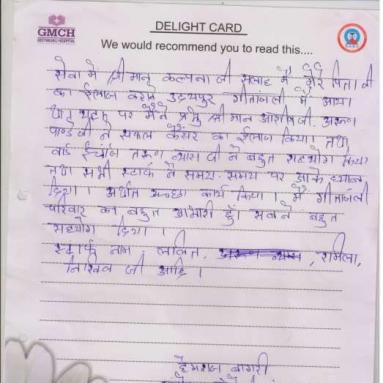 GMCH
DELIGHT CARD
We would recommend you to read this....
सेवा में श्रीमान् कल्पना जी सलाह में मेरे पिता जी
का ईलाज कराने उदयपुर गीतांजली में आया।
यहां पर मैंने श्रीमान आशीषजी, अरूण
पाण्डे जी ने सफल कैंसर का ईलाज किया। तथा
वार्ड इंचार्ज तरूण व्यास जी ने बहुत सहयोग किया
तथा सभी स्टाफ ने समय-समय पर आके ध्यान
दिया। अर्थात अच्छा कार्य किया। मैं गीतांजली
परिवार का बहुत आभारी हूं। सबने बहुत
सहयोग दिया।
स्टाफ नाम ललित, शर्मिला,
निखिल जी आदि।
हेमराज बागरी